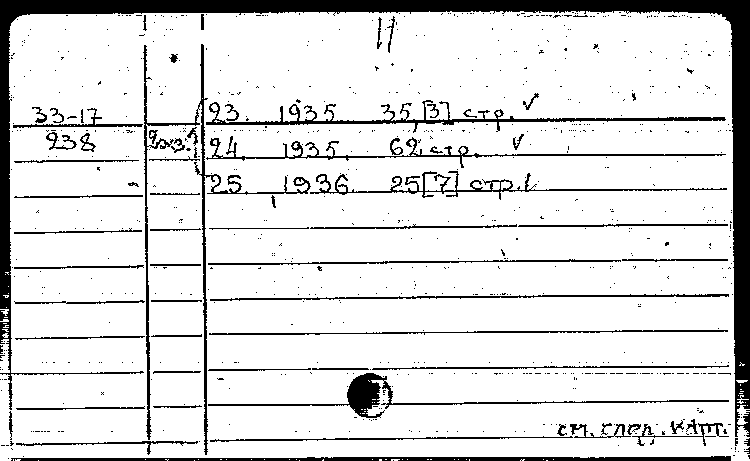 17
33-17 23. 1935. 35,[3] стр. ✓
238 2экз. 24. 1935. 62 стр. ✓
25. 1936. 25[7] стр.
см. след. карт.